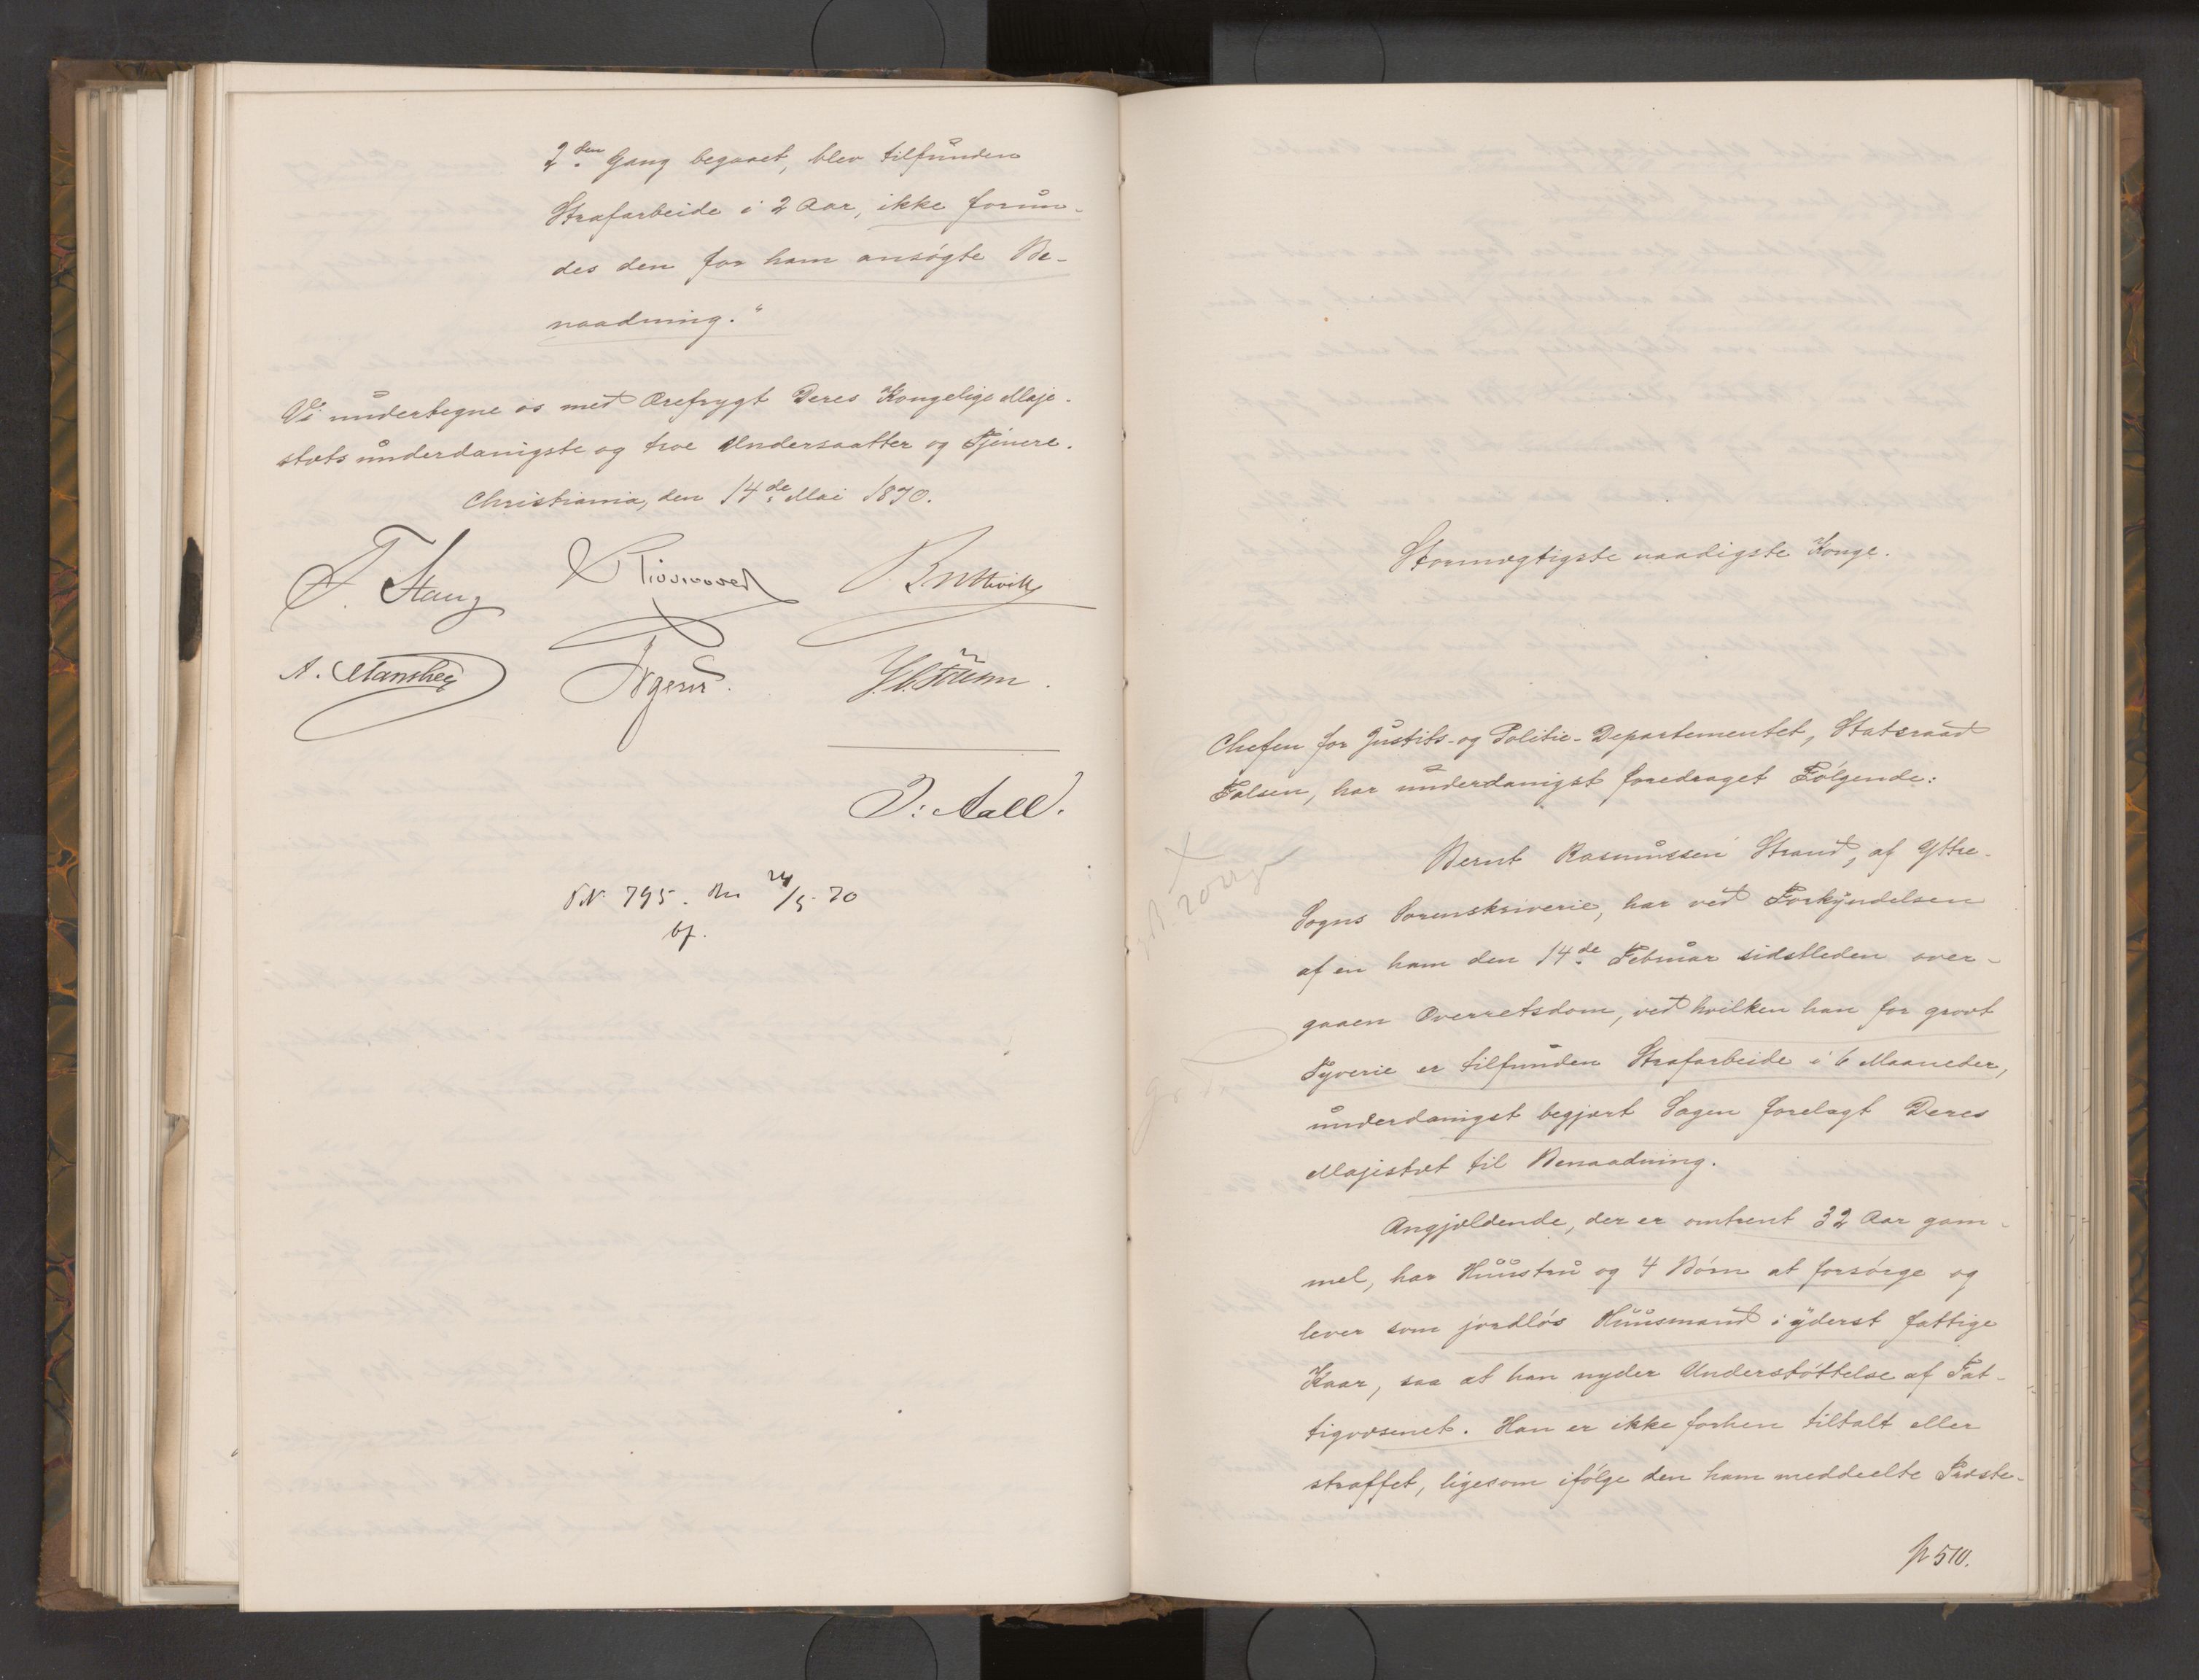 2den Gang begaaet, blev tilfunden
Strafarbeide i 2 Aar, ikke forun-
des den for ham ansøgte Be-
naadning."
Vi undertegne os med Ærefrygt Deres Kongelige Maje-
stæts underdanigste og troe Undersaatter og Tjenere.
Christiania, den 14de Mai 1870.
F. Stang
A. Manthey
J. Aall.
795. 24/5 70
bf.
Stormægtigste naadigste Konge.
Chefen for Justits- og Politie-Departementet, Statsraad
Falsen, har underdanigst foredraget Følgende:
Bernt Rasmussen Strand, af Yttre-
Sogns Sorenskriverie, har ved Forkyndelsen
af en ham den 14de Februar sidstleden over-
gaaen Overretsdom, ved hvilken han for grovt
Tyverie er tilfunden Strafarbeide i 6 Maaneder,
underdanigst begjært Sagen forelagt Deres
Majestæt til Benaadning.
Angjældende, der er omtrent 32 Aar gam-
mel, har Huustru og 4 Børn at forsørge og
lever som jordløs Huusmand i yderst fattige
Kaar, saa at han nyder Understøttelse af Fat-
tigvæsenet. Han er ikke forhen tiltalt eller
straffet, ligesom ifølge den ham meddeelte Præste-
p 510.